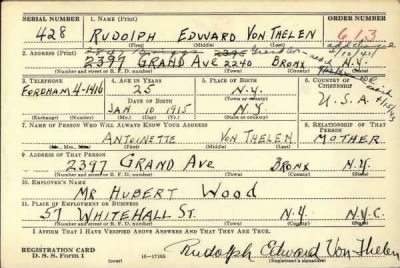 SERIAL NUMBER 1. NAME (Print) ORDER NUMBER
428 RUDOLPH EDWARD VON THELEN 613
(First) (Middle) (Last)
2. ADDRESS (Print)
2397 GRAND AVE 2240 BRONX N.Y.
(Number and street or R. F. D. number) (Town) (County) (State)
3. TELEPHONE 4. AGE IN YEARS 5. PLACE OF BIRTH 6. COUNTRY OF CITIZENSHIP
FORDHAM 4-1416 25 N.Y.
DATE OF BIRTH (Town or county)
JAN 10 1915 N.Y. U.S.A.
(Exchange) (Number) (Mo.) (Day) (Yr.) (State or country)
7. NAME OF PERSON WHO WILL ALWAYS KNOW YOUR ADDRESS 8. RELATIONSHIP OF THAT PERSON
ANTOINETTE VON THELEN MOTHER
(Mr., Mrs., Miss) (First) (Middle) (Last)
9. ADDRESS OF THAT PERSON
2397 GRAND AVE BRONX N.Y.
(Number and street or R. F. D. number) (Town) (County) (State)
10. EMPLOYER'S NAME
MR HUBERT WOOD
11. PLACE OF EMPLOYMENT OR BUSINESS
57 WHITEHALL ST. N.Y. N.Y.C.
(Number and street or R. F. D. number) (Town) (County) (State)
I AFFIRM THAT I HAVE VERIFIED ABOVE ANSWERS AND THAT THEY ARE TRUE.
REGISTRATION CARD
D. S. S. Form 1 (over) 16—17105 Rudolph Edward Von Thelen